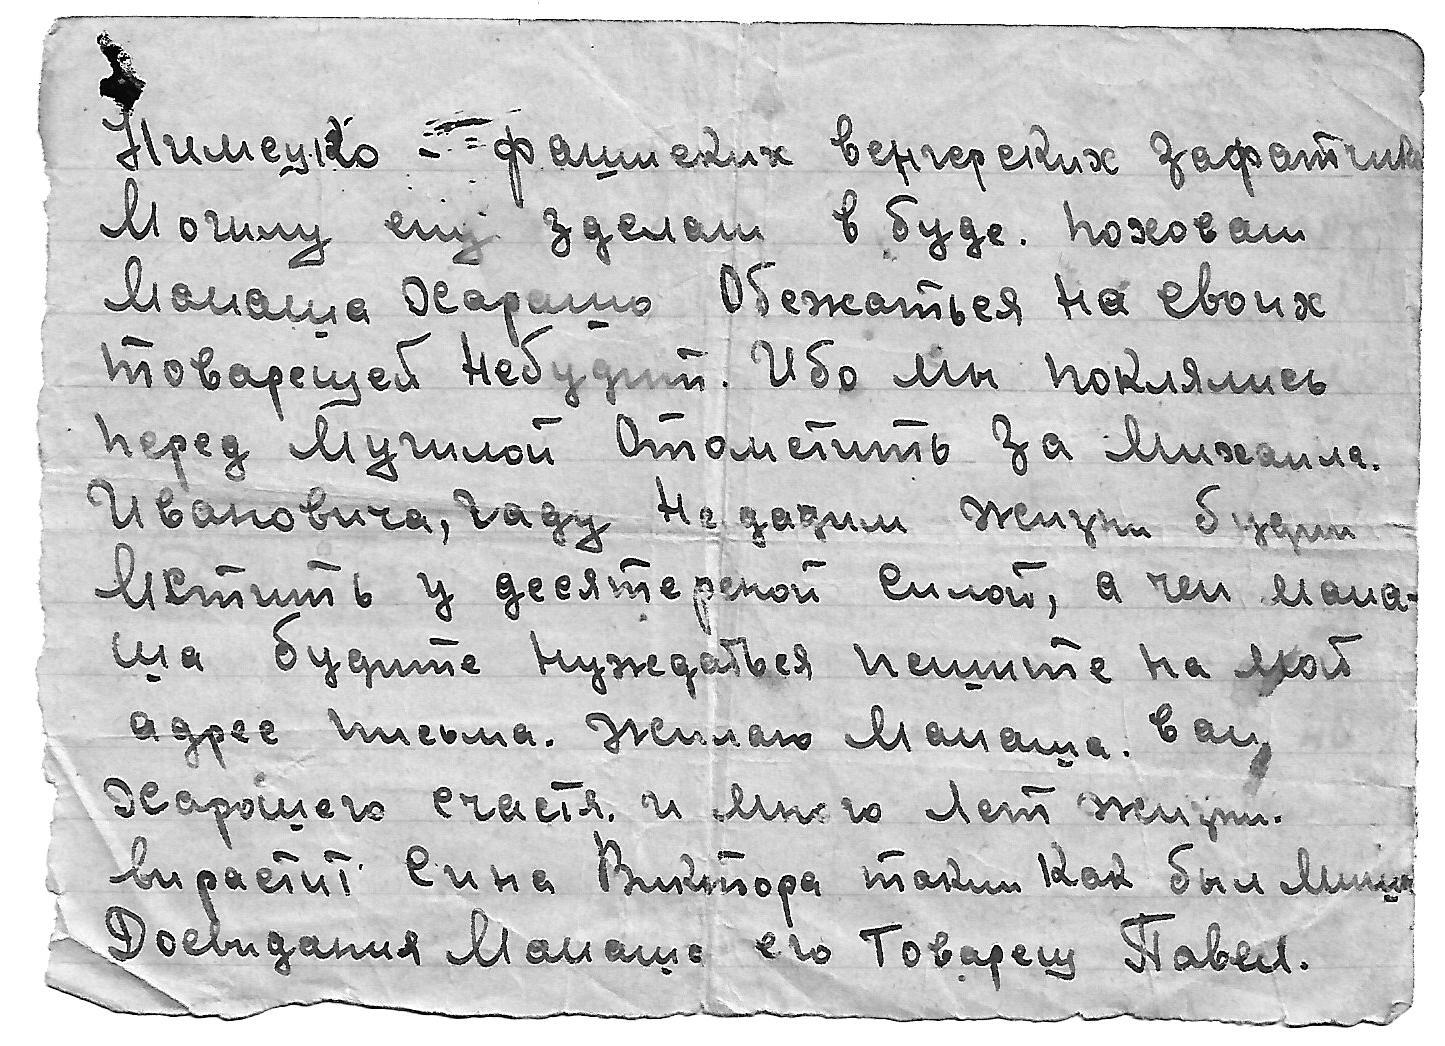 Нимецко - фашиских венгерских Зафатчика
Могилу ему зделали в буде. поховали
Мамаша Харашо Обежаться на своих
товарещей небудит. Ибо мы поклялись
перед Мугилой Отомстить За Михаила.
Ивановича, гаду не дадим жизни будим
Мстить у десятереной Силой, а чем мама-
ша будите нуждаться пишите на мой
адрес письма. Жилаю Мамаша. вам
Харошего счастя. и много лет жизни.
вирастит Сина Виктора таким Как был Миша
Досвидания Мамаша его Товарещ Павел.